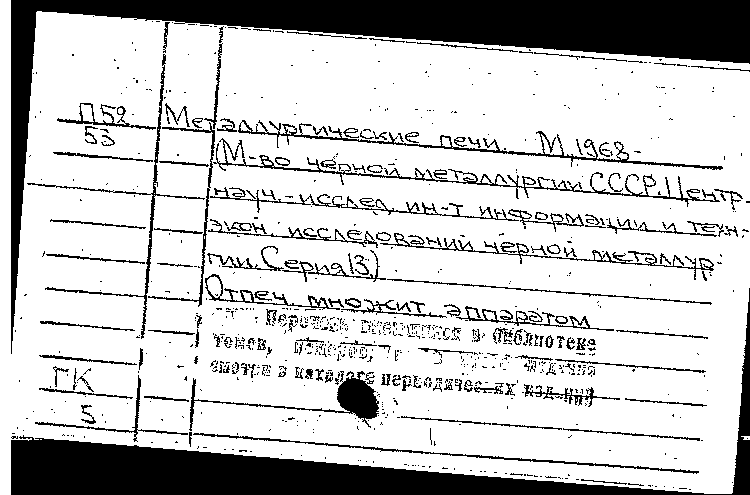 П52 Металлургические печи. М, 1968-
53 (М-во черной металлургии СССР. Центр.
науч.-исслед. ин-т информации и техн.-
экон. исследований черной металлур-
гии. Серия 13.)
Отпеч. множит. аппаратом
Перечень имеющихся в библиотеке
томов, номеров,
смотри в каталоге периодических изданий
ГК
5